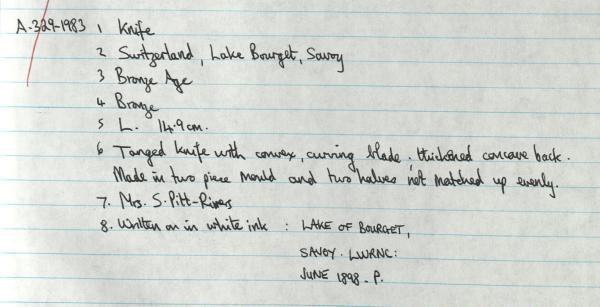 A.329-1983 1 Knife
2 Switzerland, Lake Bourget, Savoy
3 Bronze Age
4 Bronze
5 L. 14.9cm.
6 Tanged knife with convex, curving blade, thickened concave back.
Made in two piece mould and two halves not matched up evenly.
7. Mrs. S. Pitt-Rivers
8. Written on in white ink : LAKE OF BOURGET,
SAVOY. LWRNC:
JUNE 1898. P.